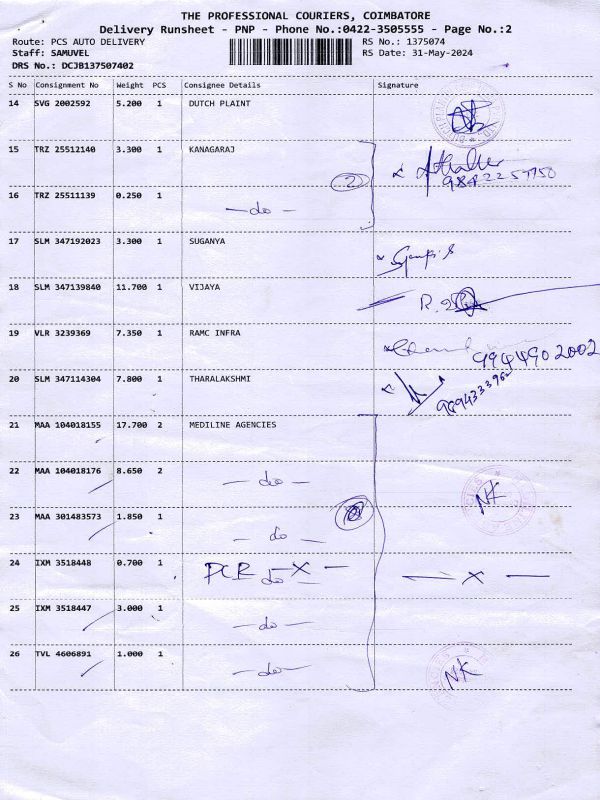 THE PROFESSIONAL COURIERS, COIMBATORE
Delivery Runsheet - PNP - Phone No.:0422-3505555 - Page No.:2
Route: PCS AUTO DELIVERY RS No.: 1375074
Staff: SAMUVEL RS Date: 31-May-2024
DRS No.: DCJB137507402
S No Consignment No Weight PCS Consignee Details Signature
14 SVG 2002592 5.200 1 DUTCH PLAINT
15 TRZ 25512140 3.300 1 KANAGARAJ
2
16 TRZ 25511139 0.250 1 - do -
17 SLM 347192023 3.300 1 SUGANYA
18 SLM 347139840 11.700 1 VIJAYA
19 VLR 3239369 7.350 1 RAMC INFRA 9944902002
20 SLM 347114304 7.800 1 THARALAKSHMI
21 MAA 104018155 17.700 2 MEDILINE AGENCIES
22 MAA 104018176 8.650 2 - do - NK
23 MAA 301483573 1.850 1 - do -
24 IXM 3518448 0.700 1 - do - x - - x -
25 IXM 3518447 3.000 1 - do -
26 TVL 4606891 1.000 1 - do - NK